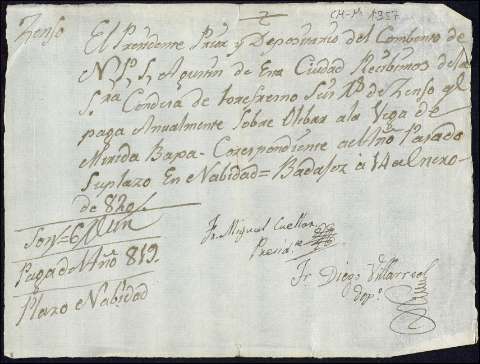 CM-M 1357
Zenso
El Presidente Prior y Depositario del Combento de
N. P. S. Agustin de Esta Ciudad Recibimos de la
S.ra Condesa de torefresno Seis R.s de Zenso q.e
paga Anualmente Sobre Olibar a la Vega de
Merida Bapa - Correspondiente a el Año Pasado
Su plazo En Nabidad = Badajoz a 14 de Enero -
de 820 -
Son = 6 R
Paga del Año 819.
Plazo e Nabidad
Fr. Miguel Cuellar
Presid.te
Fr. Diego Villarreal
Dep.o